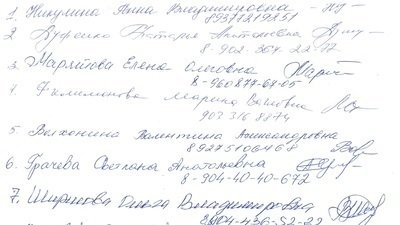 1. Никулина Анна Владимировна -
89377219851
2. Дудченко Наталья Анатольевна
8-902-364-22-77
3. Марлётова Елена Олеговна
8-960877-67-05
4. Филимонова Марина
903 316 8874
5. Волхонина Валентина Александровна
89275106468
6. Грачева Светлана Анатольевна
8-904-40-40-672
7. Ширинова Ольга Владимировна
8904-436-52-22